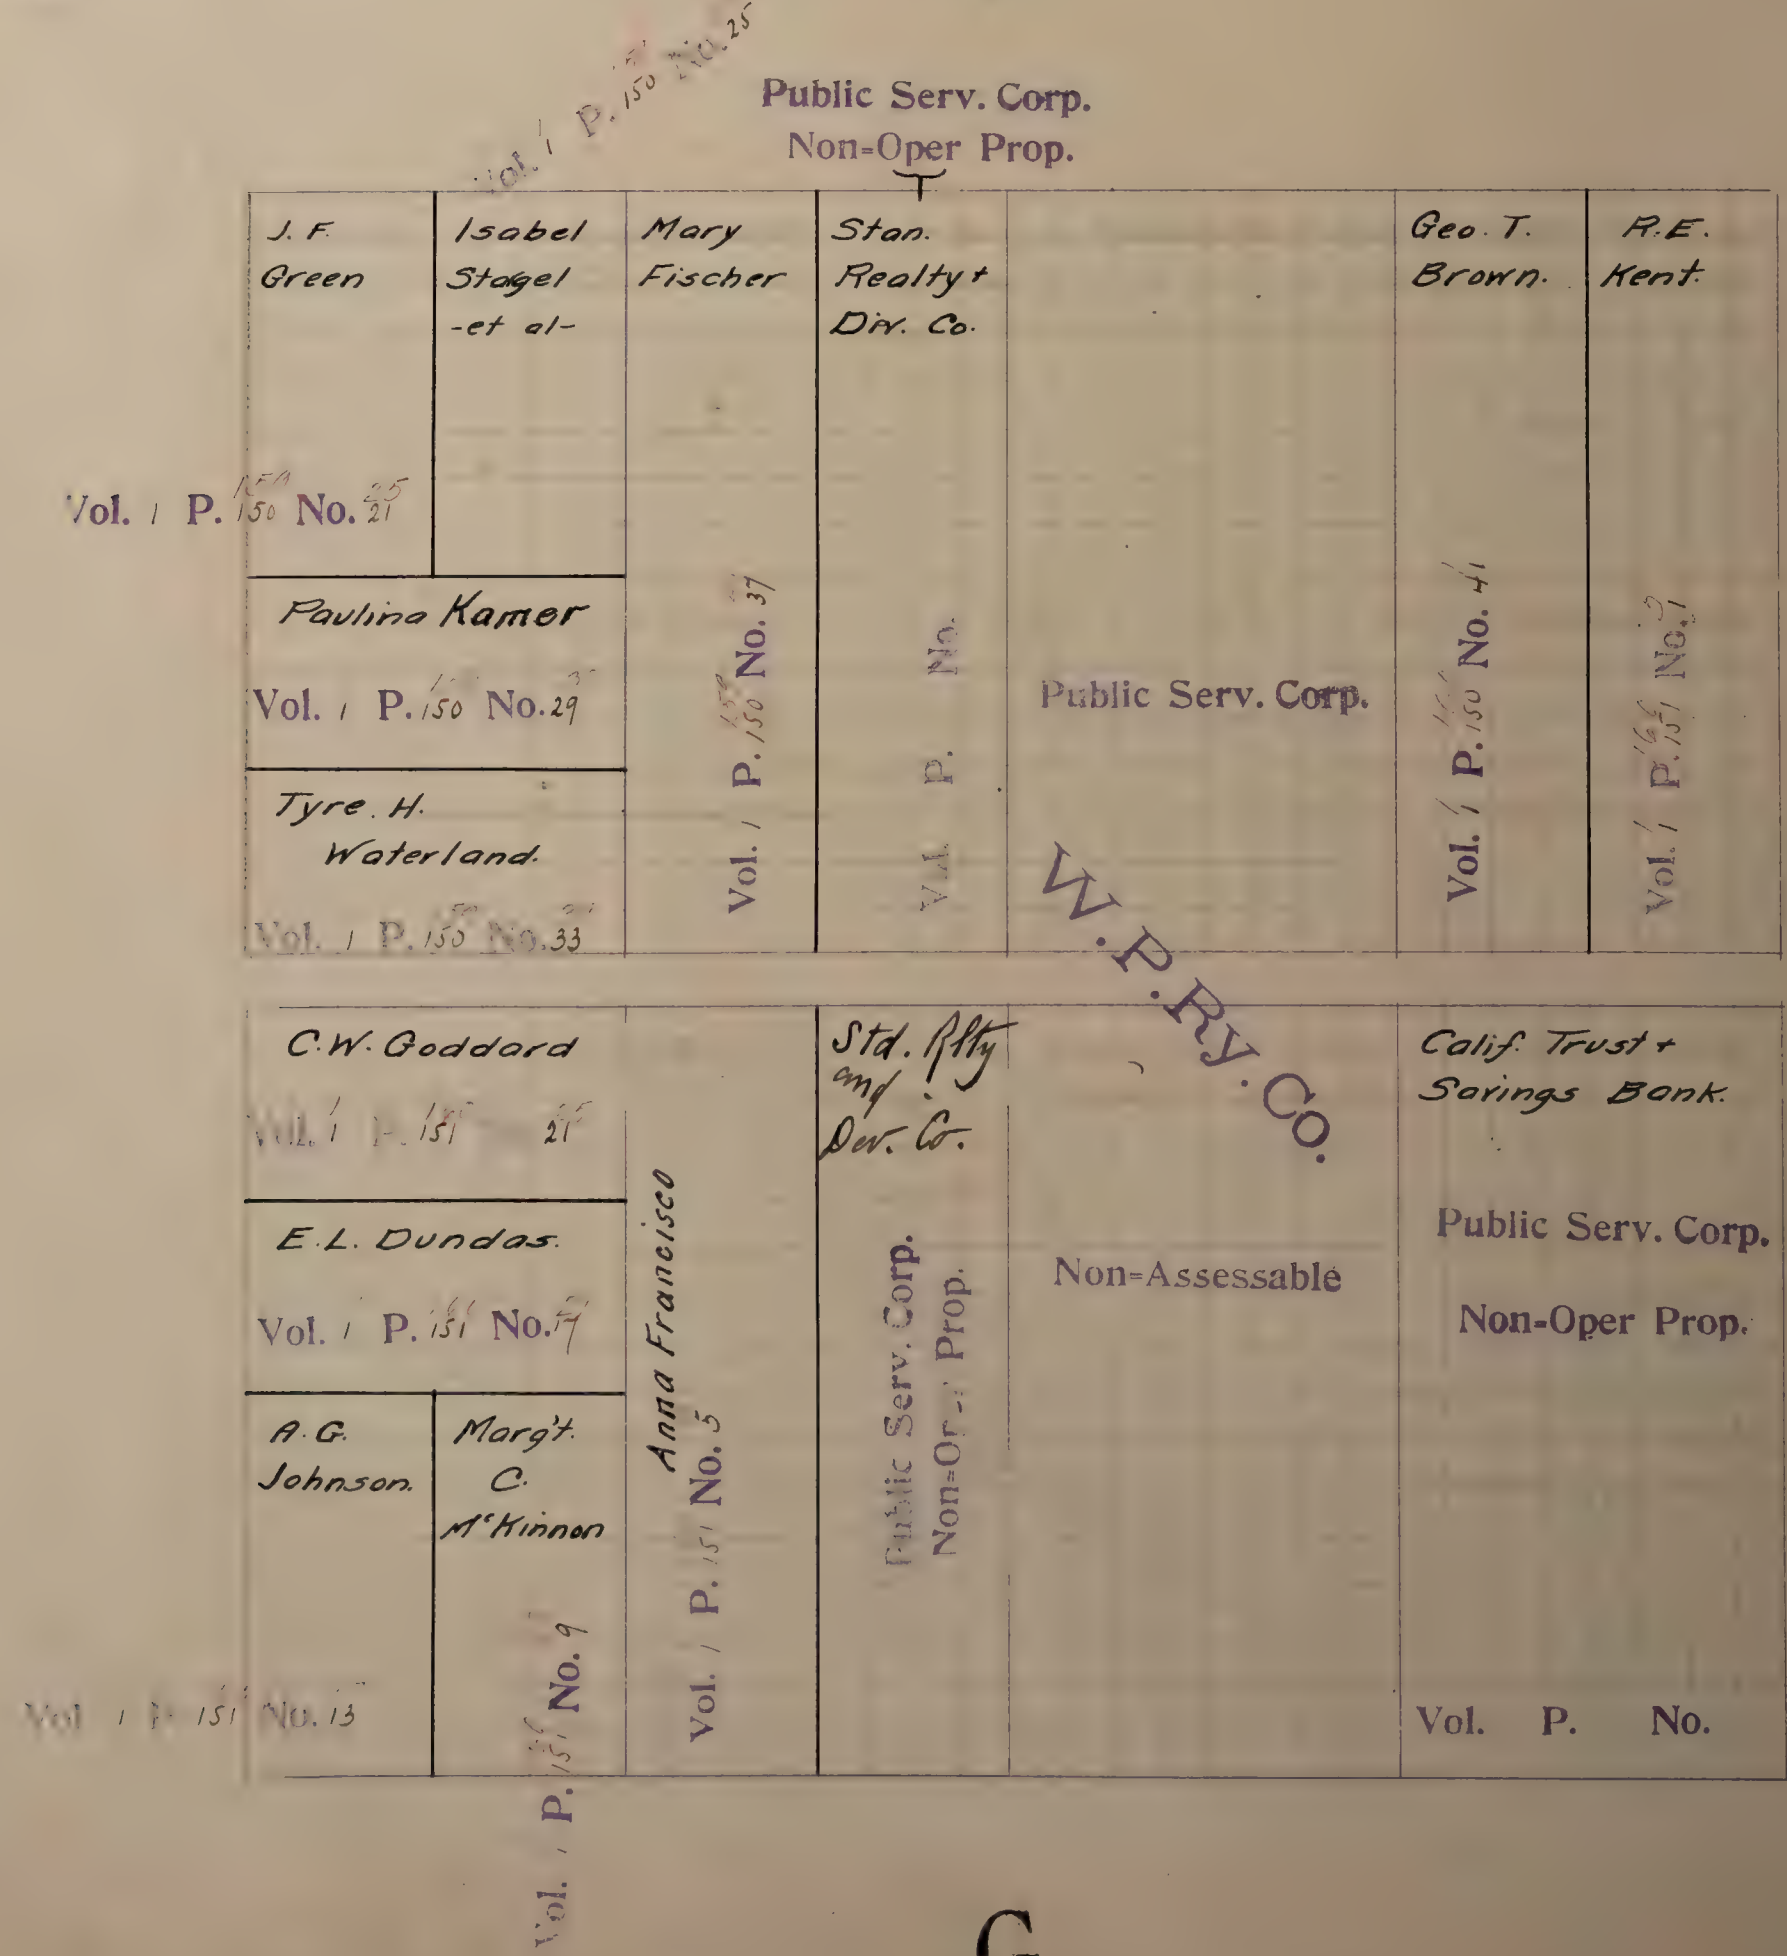 Vol. 1 P. 150 No. 25
Public Serv. Corp.
Non=Oper Prop.
J. F.
Green
Vol. 1 P. 150 No. 21
Isabel
Stagel
-et al-
Mary
Fischer
Vol. 1 P. 150 No. 37
Stan.
Realty +
Div. Co.
Vol. P. No.
Public Serv. Corp.
Geo. T.
Brown.
Vol. 1 P. 150 No. 41
R. E.
Kent.
Vol. 1 P. 151 No. 1
Paulina Kamer
Vol. 1 P. 150 No. 29
Tyre. H.
Waterland.
Vol. 1 P. 150 No. 33
W.P.Ry.Co.
C. W. Goddard
Vol. 1 P. 151 21
E. L. Dundas.
Vol. 1 P. 151 No. 17
A. G.
Johnson.
Vol 1 P 151 No. 13
Marg't.
C.
McKinnon
Vol. 1 P. 151 No. 9
Anna Francisco
Vol. 1 P. 151 No. 5
Std. Rlty
and
Dev. Co.
Public Serv. Corp.
Non=Oper Prop.
Non=Assessable
Calif. Trust +
Savings Bank.
Public Serv. Corp.
Non=Oper Prop.
Vol. P. No.
G